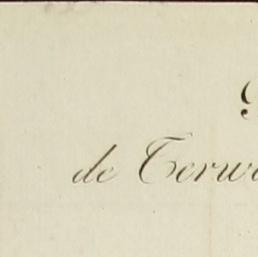 de Terw